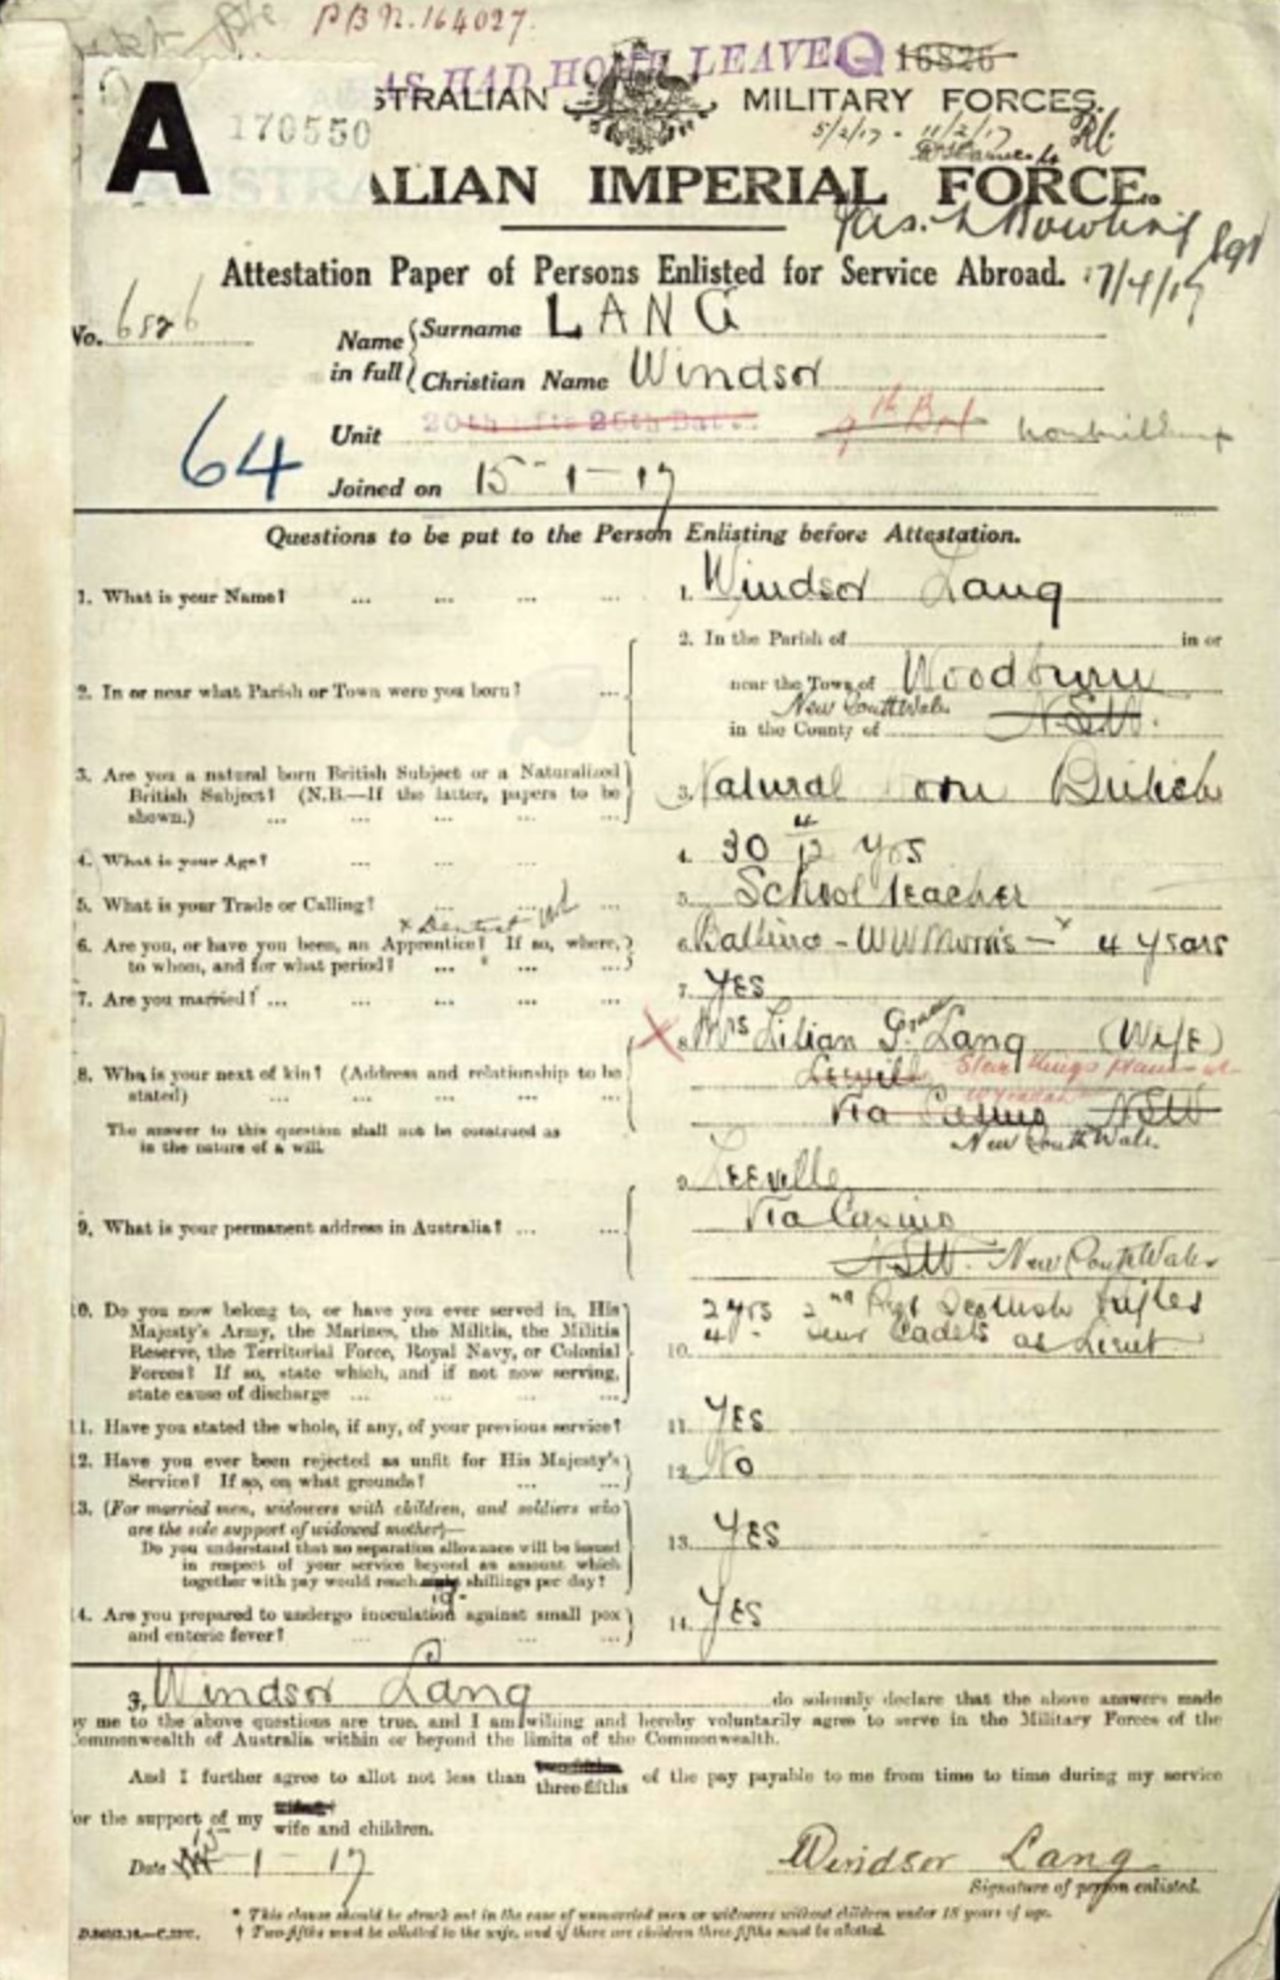 P B R. 164027.
HAD HOME LEAVE Q 16826
A
170550
STRALIAN MILITARY FORCES.
5/2/17 - 11/2/17
ALIAN IMPERIAL FORCE.
Jas. Lt
17/4/17
Attestation Paper of Persons Enlisted for Service Abroad.
No. 6826
Name in full { Surname LANG
Christian Name Windsor
64
Unit 9th Bat
Joined on 15-1-17
Questions to be put to the Person Enlisting before Attestation.
1. What is your Name? ... ... ... ... 1. Windsor Lang
2. In or near what Parish or Town were you born? ... 2. In the Parish of in or
near the Town of Woodburn
New South Wales
in the County of N.S.W.
3. Are you a natural born British Subject or a Naturalized 3. Natural Born British
British Subject? (N.B.—If the latter, papers to be
shown.) ... ... ... ... ...
4. What is your Age? ... ... ... 4. 30 4/12 yrs
5. What is your Trade or Calling? ... ... ... 5. School teacher
x Dentist
6. Are you, or have you been, an Apprentice? If so, where, 6. Ballina - W W Morris - x 4 years
to whom, and for what period? ... ... ...
7. Are you married? ... ... ... ... 7. YES
8. Who is your next of kin? (Address and relationship to be 8. Mrs Lilian G. Lang (Wife)
stated) ... ... ... ... Leeville
via Casino N.S.W
New South Wales
The answer to this question shall not be construed as
in the nature of a will.
9. What is your permanent address in Australia? ... ... 9. Leeville
Via Casino
N.S.W. New South Wales
10. Do you now belong to, or have you ever served in, His 2 yrs 2nd Regt Scottish Rifles
Majesty's Army, the Marines, the Militia, the Militia 4 " Cadets as Lieut
Reserve, the Territorial Force, Royal Navy, or Colonial 10.
Forces? If so, state which, and if not now serving,
state cause of discharge ... ... ...
11. Have you stated the whole, if any, of your previous service? 11. YES
12. Have you ever been rejected as unfit for His Majesty's 12. No
Service? If so, on what grounds? ... ...
13. (For married men, widowers with children, and soldiers who
are the sole support of widowed mother)—
Do you understand that no separation allowance will be issued 13. YES
in respect of your service beyond an amount which
together with pay would reach shillings per day?
14. Are you prepared to undergo inoculation against small pox 14. YES
and enteric fever? ... ... ... ...
I, Windsor Lang do solemnly declare that the above answers made
by me to the above questions are true, and I am willing and hereby voluntarily agree to serve in the Military Forces of the
Commonwealth of Australia within or beyond the limits of the Commonwealth.
And I further agree to allot not less than three-fifths of the pay payable to me from time to time during my service
for the support of my wife and children.
Date 15-1-17 Windsor Lang
Signature of person enlisted.
* This clause should be struck out in the case of unmarried men or widowers without children under 18 years of age.
† Two-fifths must be allotted to the wife, and if there are children three-fifths must be allotted.